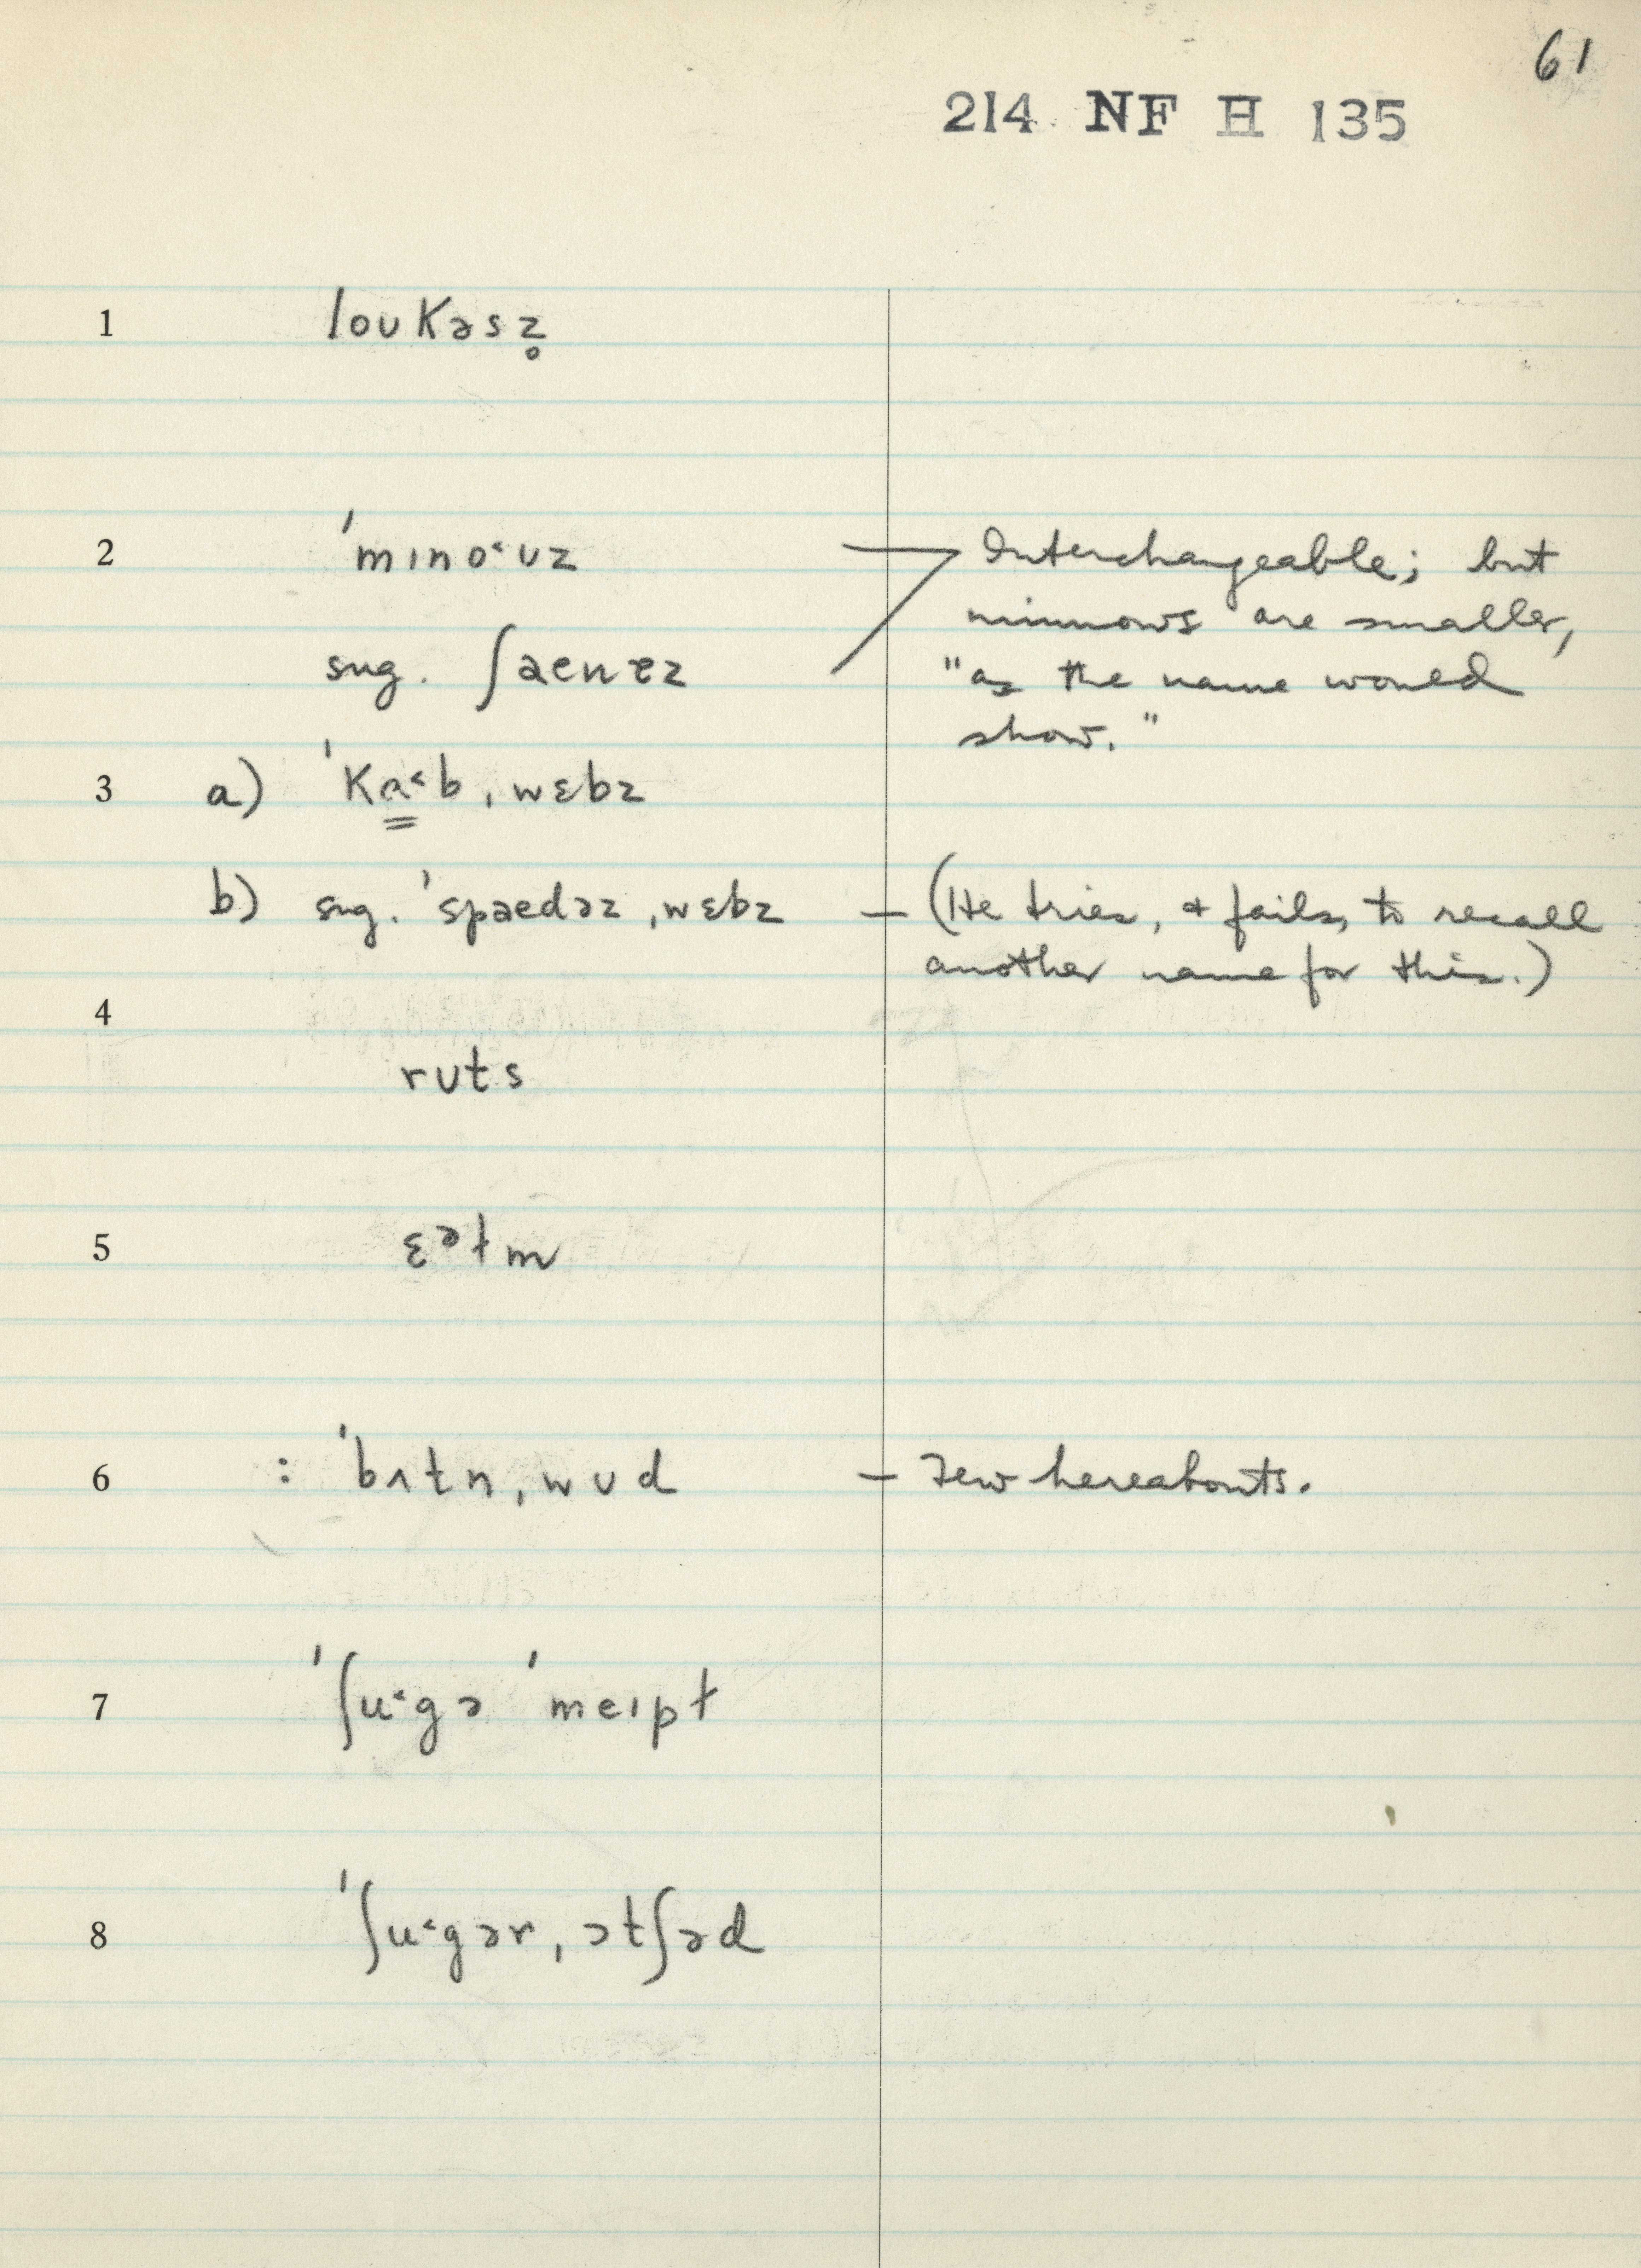 61
214 NF H 135
1 loʊkəsz̥
2 ˈmɪno˂ʊz — Interchangeable; but
minnows are smaller,
sug. ʃaenɛz "as the name would
show."
3 a) ˈKa̳˂bˌwɛbz
b) sug. ˈspaedəzˌwɛbz — (He tries, & fails, to recall
another name for this.)
4
rʊts
5 ɛᵊɫm
6 : ˈbʌtnˌwʊd — Few hereabouts.
7 ˈʃu˂gə ˈmeɪpɫ
8 ˈʃu˂gərˌɔtʃəd